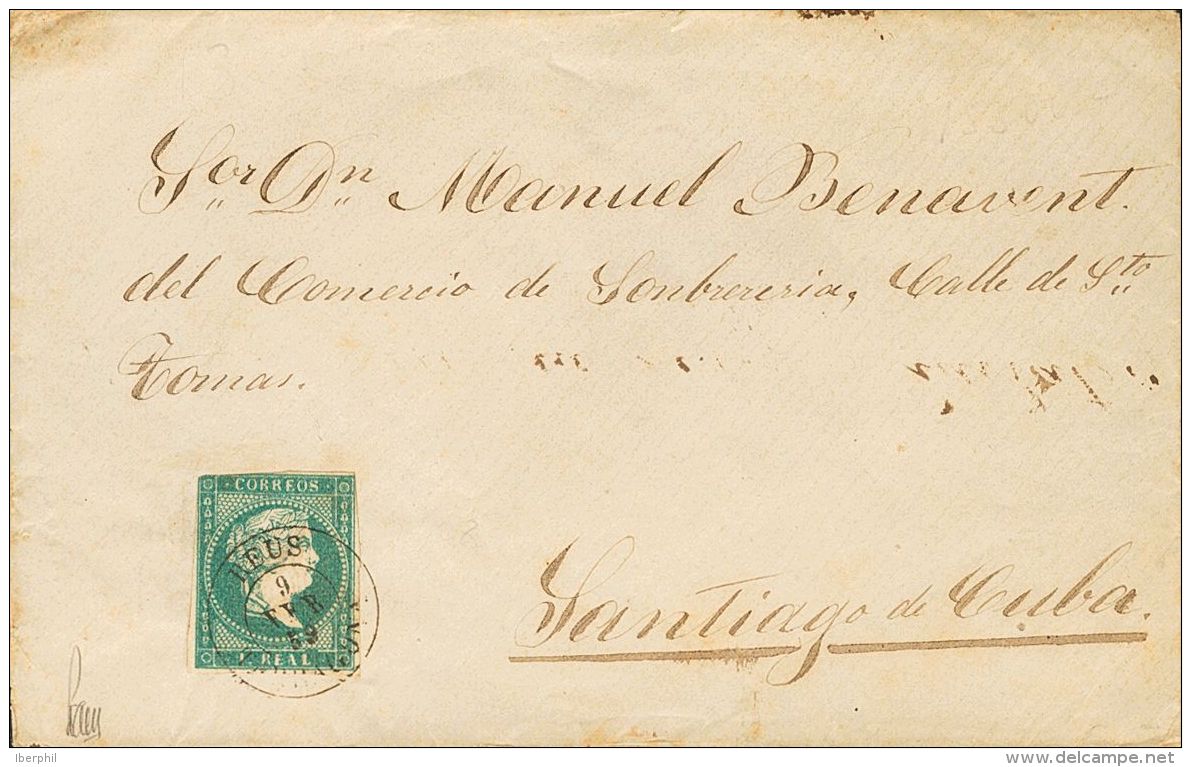 Sor Dn Manuel Benavent.
del Comercio de Sonbrereria, Calle de Sto
Tomas.
CORREOS
REUS
9
FEB
59
1 REAL
Santiago de Cuba.
Iberphil
www.delcampe.net